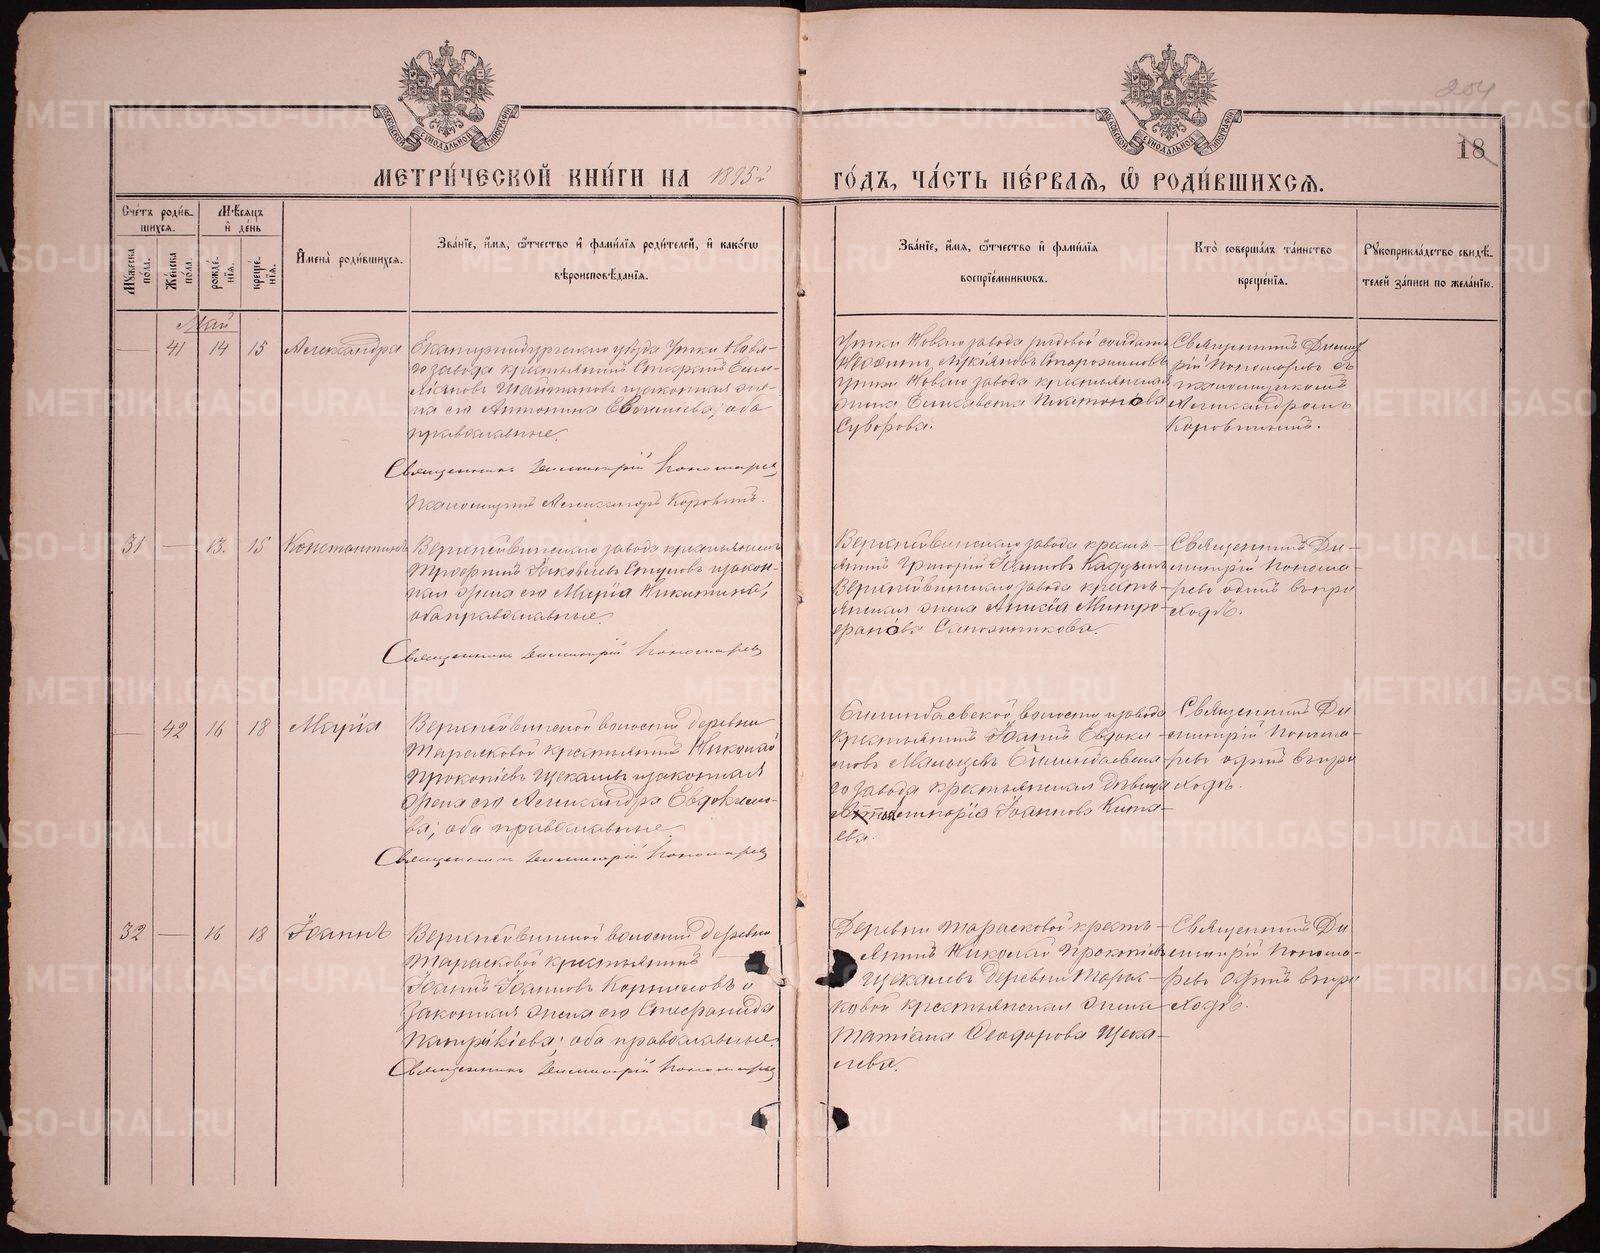 204
18
МОСКОВСКОЙ СѴНОДАЛЬНОЙ ТИПОГРАФІИ
МОСКОВСКОЙ СѴНОДАЛЬНОЙ ТИПОГРАФІИ
МЕТРИ́ЧЕСКОЙ КНИ́ГИ НА 1895й
ГО́ДЪ, ЧА́СТЬ ПЕ́РВАѦ, Ѡ РОДИ́ВШИХСѦ.
Сче́тъ роди́в-
шихсѧ.
Мꙋжеска по́ла.
Же́нска по́ла.
Мѣ́сѧцъ и де́нь
рожде́нїѧ.
креще́нїѧ.
И҆мена̀ роди́вшихсѧ.
Зва́нїе, и҆́мѧ, ѻ҆́тчество и҆ фами́лїѧ роди́телей, и҆ како́гѡ
вѣроисповѣ́данїѧ.
Зва́нїе, и҆́мѧ, ѻ҆́тчество и҆ фами́лїѧ
воспрїе́мникѡвъ.
Кто̀ соверша́лъ та́инство
креще́нїѧ.
Рꙋкоприкла́дство свидѣ́-
телей за́писи по жела́нїю.
Май
— 41 14 15 Александра
Екатеринбургскаго уѣзда Утки Нова-
го завода крестьянинъ
законная же-
на его Антонина оба
православные.
Священникъ Димитрій Пономаревъ
Псаломщикъ Александръ Коровинъ.
Утки Новаго завода рядовой солдатъ
Утки Новаго завода крестьянская
жена Елисавета Платонова
Суворова.
Священникъ Димит-
рій Пономаревъ съ
псаломщикомъ
Александромъ
Коровинымъ.
31 — 13. 15 Константинъ
Верхнейвинскаго завода крестьянинъ
Іаковлевъ законная
жена его Марія Никитина;
оба православные.
Священникъ Димитрій Пономаревъ
Верхнейвинскаго завода кресть-
янинъ Григорій Іоанновъ
Верхнейвинскаго завода кресть-
янская жена Анисія Митро-
фанова Сапожникова.
Священникъ Ди-
митрій Понома-
ревъ одинъ въ при-
ходѣ.
— 42 16 18 Марія
Верхнейвинской волости деревни
Тарасковой крестьянинъ Николай
Прокопіевъ Щекалевъ и законная
жена его Александра Евдокимо-
ва; оба православные.
Священникъ Димитрій Пономаревъ
Билимбаевской волости и завода
крестьянинъ Іоаннъ Евдоки-
мовъ Мальцевъ Билимбаевска-
го завода крестьянская дѣвица
Іоаннова Кита-
ева.
Священникъ Ди-
митрій Понома-
ревъ одинъ въ при-
ходѣ.
32 — 16 18 Іоаннъ
Верхнейвинской волости деревни
Тарасковой крестьянинъ
Іоаннъ Іоанновъ Корниловъ и
законная жена его Стефанида
Патрикіева; оба православные.
Священникъ Димитрій Пономаревъ
Деревни Тарасковой кресть-
янинъ Николай Прокопіевъ
Щекалевъ деревни Тарас-
ковой крестьянская жена
Татіана Ѳеодорова Щека-
лева.
Священникъ Ди-
митрій Понома-
ревъ одинъ въ при-
ходѣ.
METRIKI.GASO-URAL.RU